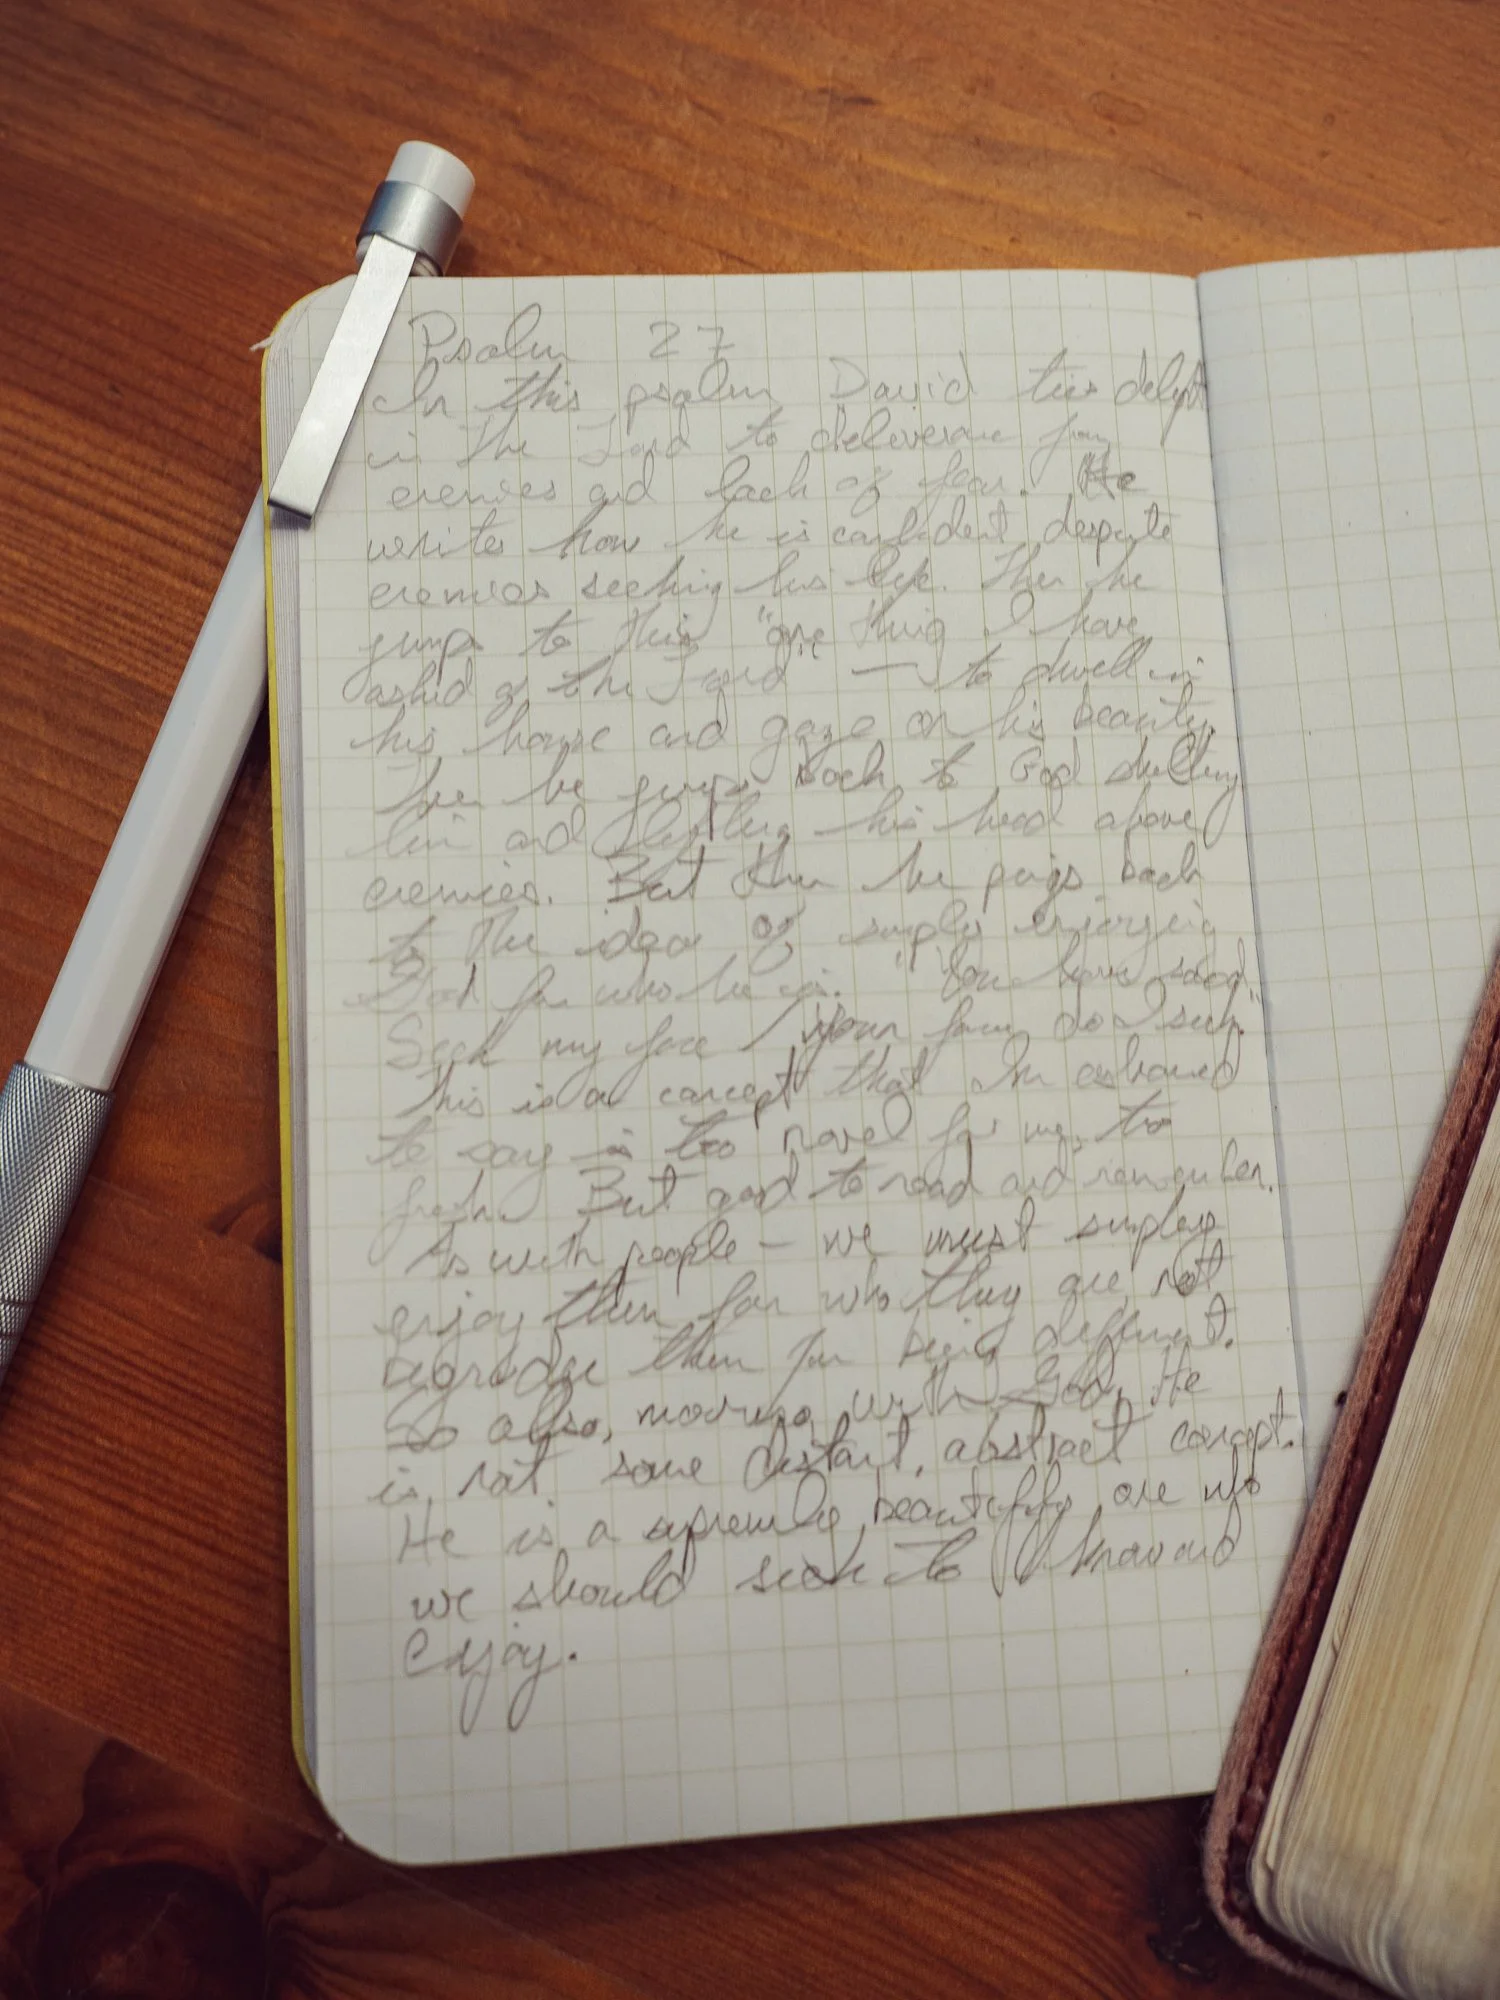 Psalm 27
In this psalm David ties delight
in the Lord to deliverance from
enemies and lack of fear. He
writes how he is confident despite
enemies seeking his life. Then he
jumps to this "one thing I have
asked of the Lord — to dwell in
his house and gaze on his beauty.
Then he jumps back to God sheltering
him and lifting his head above
enemies. But then he pings back
to the idea of simply enjoying
God for who he is. "You have said,
Seek my face / your face do I seek."
This is a concept that I'm ashamed
to say is too novel for me, too
fresh. But good to read and remember.
As with people – we must simply
enjoy them for who they are, not
degrade them for being different.
So also, moving with God. He
is not some distant, abstract concept.
He is a supremely beautiful one who
we should seek to know and
enjoy.